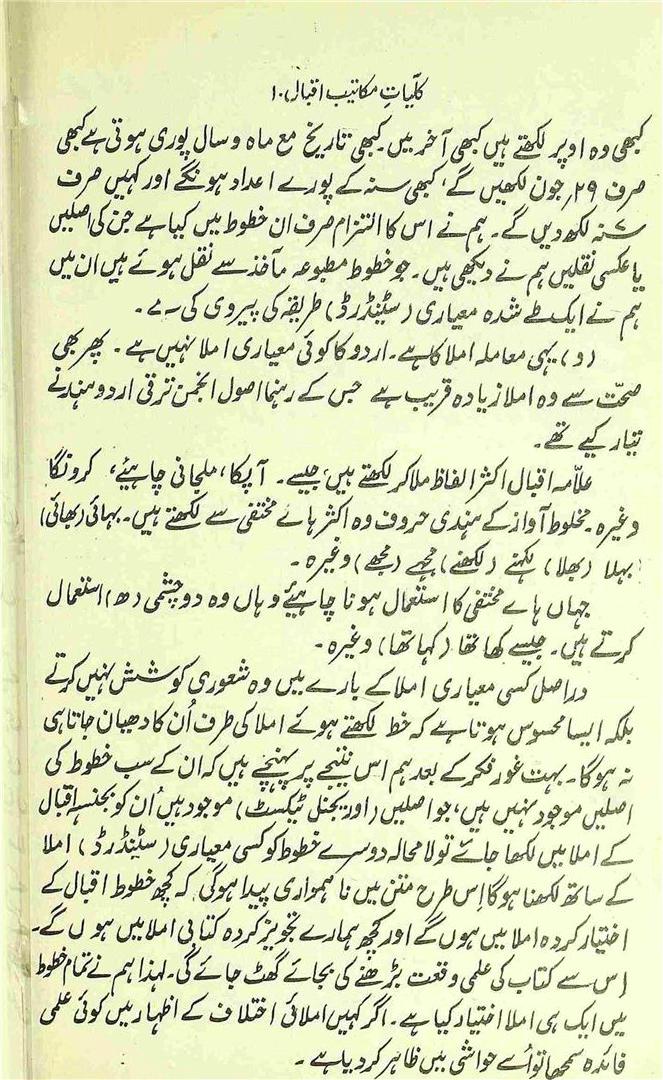 کلّیاتِ مکاتیب اقبال ۔۱
کبھی وہ اوپر لکھتے ہیں کبھی آخر میں۔ کبھی تاریخ مع ماہ و سال پوری ہوتی ہے کبھی
صرف ۲۹؍ جون لکھیں گے، کبھی سنہ کے پورے اعداد ہونگے اور کہیں صرف
لکھ دیں گے۔ ہم نے اس کا التزام صرف ان خطوط میں کیا ہے جن کی اصلیں
یا عکسی نقلیں ہم نے دیکھی ہیں۔ جو خطوط مطبوعہ مآخذ سے نقل ہوئے ہیں ان میں
ہم نے ایک طے شدہ معیاری (سٹینڈرڈ) طریقہ کی پیروی کی ہے۔
(و) یہی معاملہ املا کا ہے۔ اردو کا کوئی معیاری املا نہیں ہے۔ پھر بھی
صحّت سے وہ املا زیادہ قریب ہے جس کے رہنما اصول انجمن ترقی اردو ہند نے
تیار کیے تھے۔
علّامہ اقبال اکثر الفاظ ملا کر لکھتے ہیں، جیسے۔ آپکا، ملجانی چاہیئے، کرونگا
وغیرہ۔ مخلوط آواز کے ہندی حروف وہ اکثر ہائے مختفی سے لکھتے ہیں۔ بہائی (بھائی)
بہلا (بھلا) لکہنے (لکھنے) مجہے (مجھے) وغیرہ۔
جہاں ہائے مختفی کا استعمال ہونا چاہیئے وہاں وہ دو چشمی (ھ) استعمال
کرتے ہیں۔ جیسے کھا تھا (کہا تھا) وغیرہ۔
دراصل کسی معیاری املا کے بارے میں وہ شعوری کوشش نہیں کرتے
بلکہ ایسا محسوس ہوتا ہے کہ خط لکھتے ہوئے املا کی طرف اُن کا دھیان جاتا ہی
نہ ہوگا۔ بہت غور فکر کے بعد ہم اس نتیجے پر پہنچے ہیں کہ ان کے سب خطوط کی
اصلیں موجود نہیں ہیں، جو اصلیں (اوریجنل ٹیکسٹ) موجود ہیں اُن کو بجنسہٖ اقبال
کے املا میں لکھا جائے تو لا محالہ دوسرے خطوط کو کسی معیاری (سٹینڈرڈ) املا
کے ساتھ لکھنا ہوگا اِس طرح متن میں نا ہمواری پیدا ہوگی کہ کچھ خطوط اقبال کے
اختیار کردہ املا میں ہوں گے اور کچھ ہمارے تجویز کردہ کتابی املا میں ہوں گے۔
اِس سے کتاب کی علمی وقعت بڑھنے کی بجائے گھٹ جائے گی۔ لہٰذا ہم نے تمام خطوط
میں ایک ہی املا اختیار کیا ہے۔ اگر کہیں املائی اختلاف کے اظہار میں کوئی علمی
فائدہ سمجھا تو اُسے حواشی میں ظاہر کر دیا ہے۔